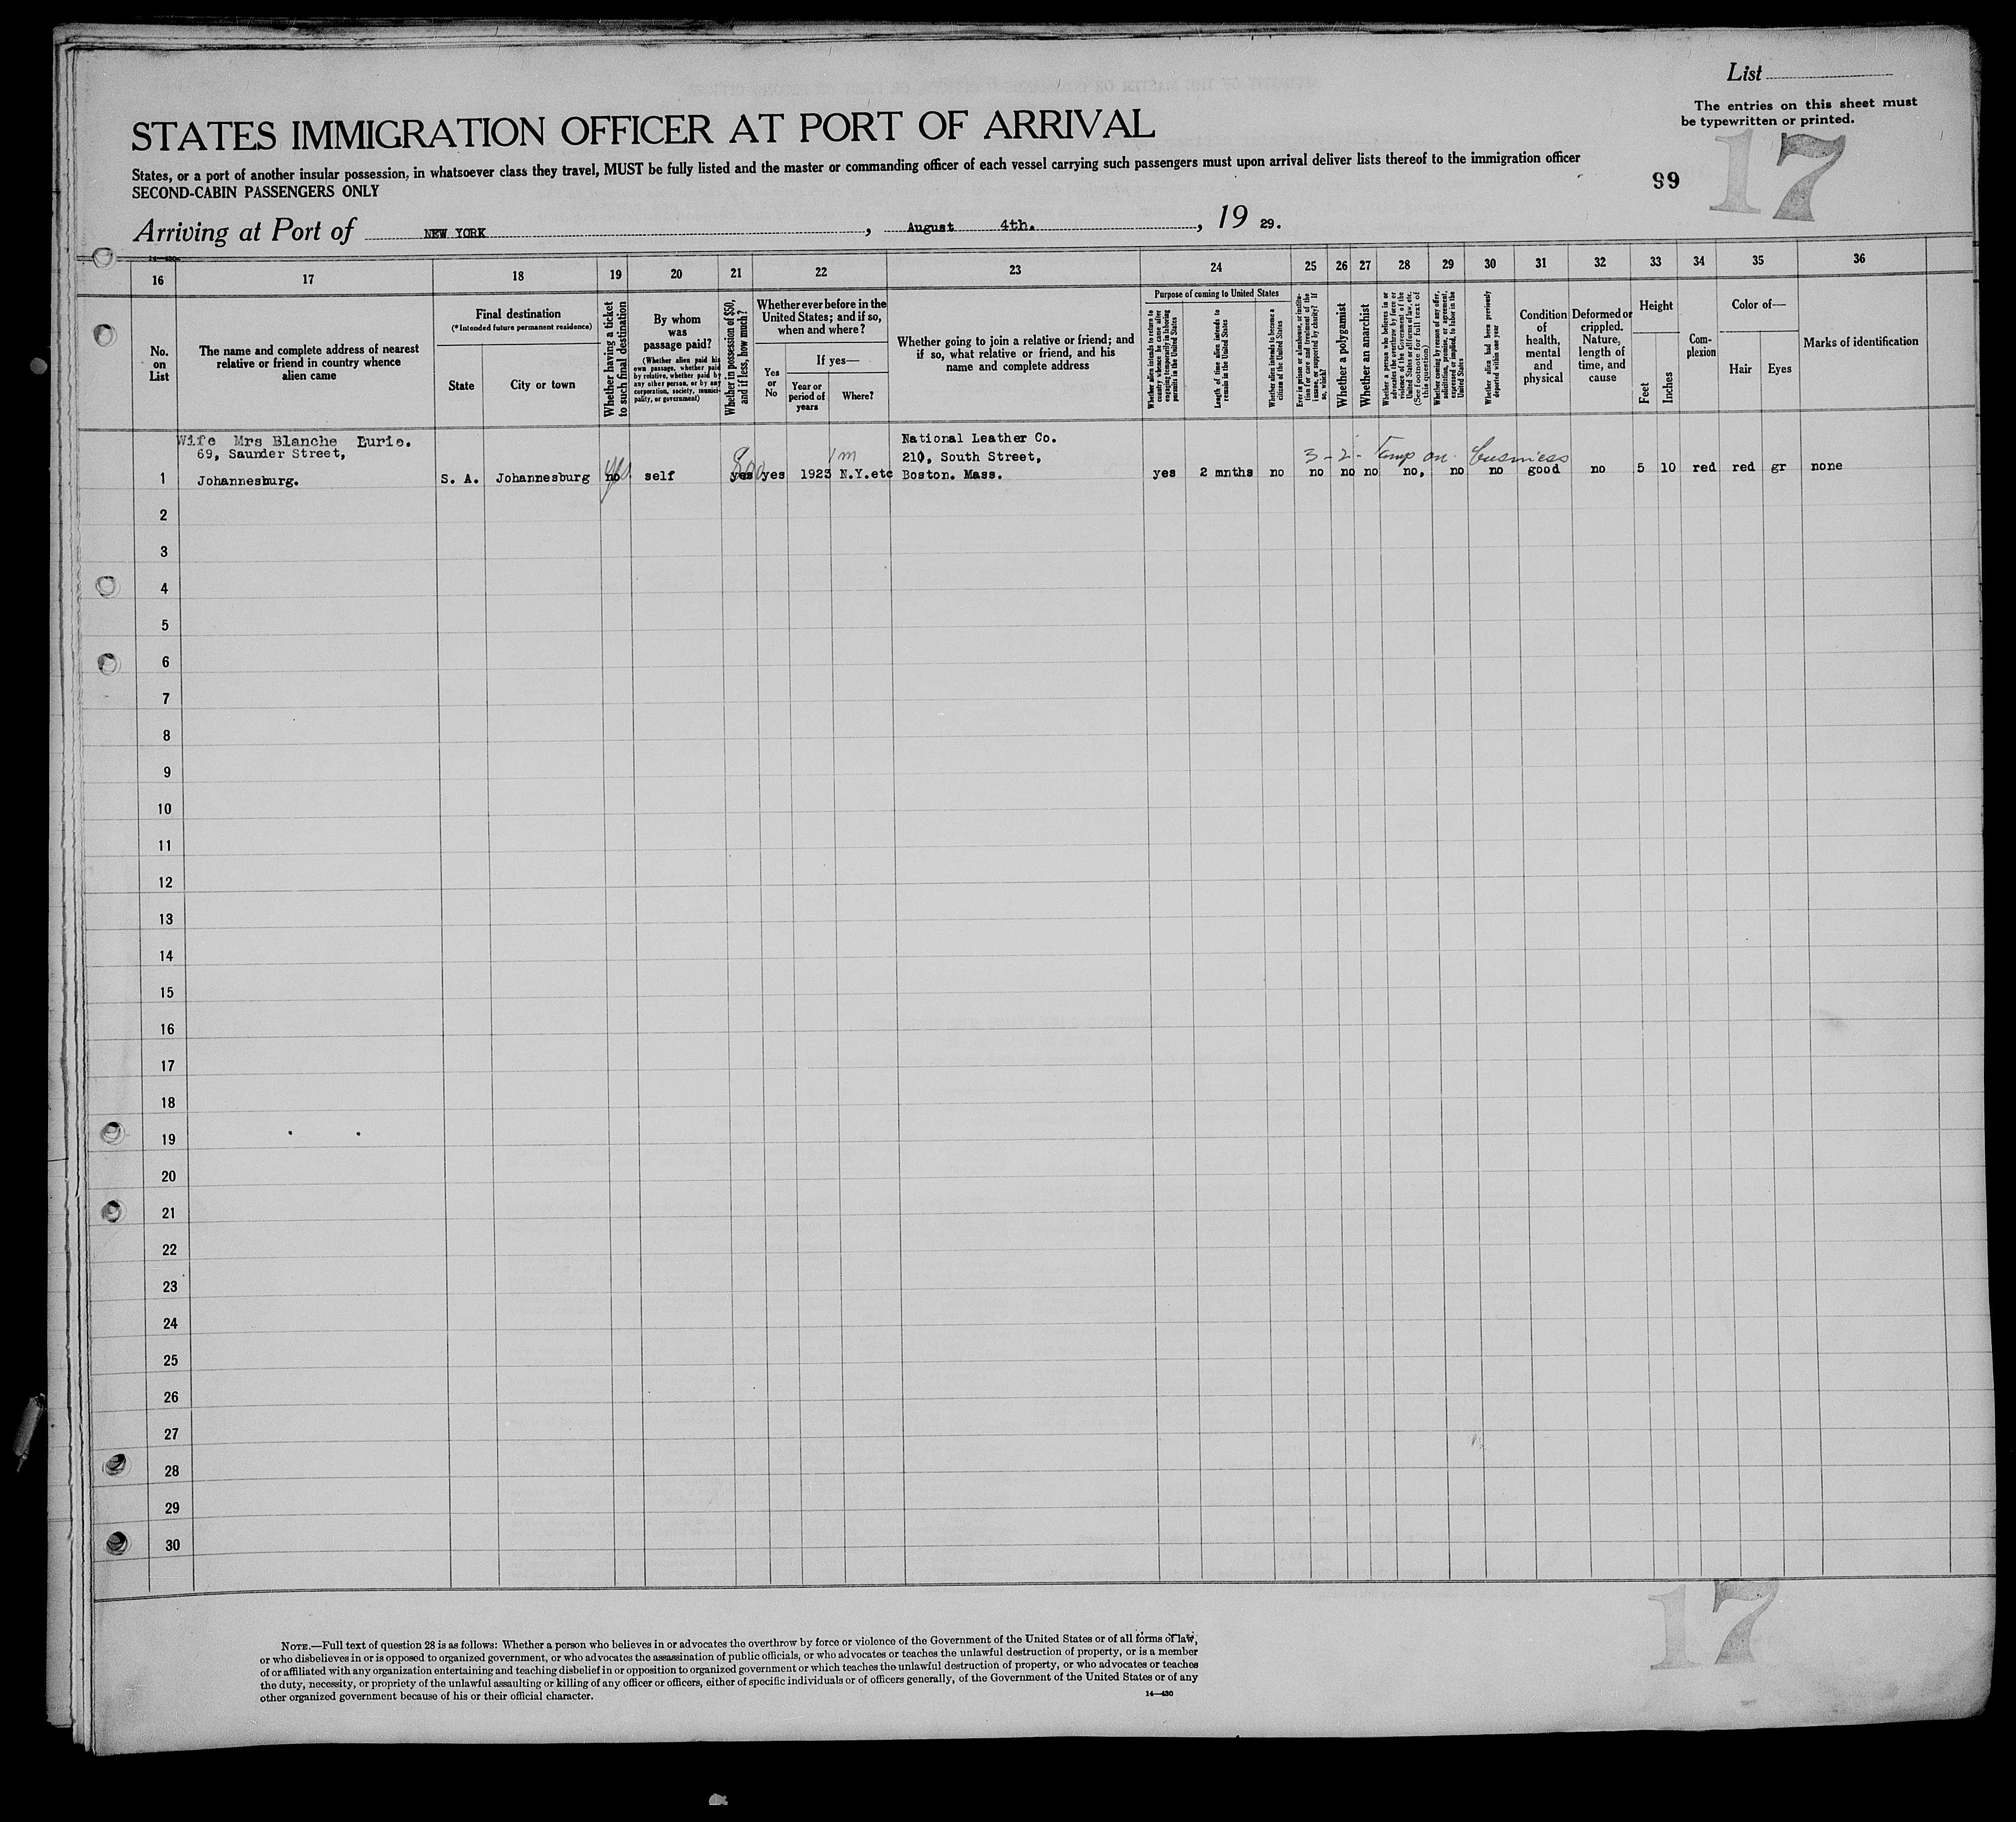 List
The entries on this sheet must
be typewritten or printed.
17
99
STATES IMMIGRATION OFFICER AT PORT OF ARRIVAL
States, or a port of another insular possession, in whatsoever class they travel, MUST be fully listed and the master or commanding officer of each vessel carrying such passengers must upon arrival deliver lists thereof to the immigration officer
SECOND-CABIN PASSENGERS ONLY
Arriving at Port of NEW YORK, August 4th., 19 29.
14—430
16 17 18 19 20 21 22 23 24 25 26 27 28 29 30 31 32 33 34 35 36
No.
on
List
The name and complete address of nearest
relative or friend in country whence
alien came
Final destination
(*Intended future permanent residence)
State
City or town
Whether having a ticket
to such final destination
By whom
was
passage paid?
(Whether alien paid his
own passage, whether paid
by relative, whether paid by
any other person, or by any
corporation, society, munici-
pality, or government)
Whether in possession of $50,
and if less, how much?
Whether ever before in the
United States; and if so,
when and where?
Yes
or
No
If yes—
Year or
period of
years
Where?
Whether going to join a relative or friend; and
if so, what relative or friend, and his
name and complete address
Purpose of coming to United States
Whether alien intends to return to
country whence he came after
engaging temporarily in laboring
pursuits in the United States
Length of time alien intends to
remain in the United States
Whether alien intends to become a
citizen of the United States
Ever in prison or almshouse, or institu-
tion for care and treatment of the
insane, or supported by charity? If
so, which?
Whether a polygamist
Whether an anarchist
Whether a person who believes in or
advocates the overthrow by force or
violence of the Government of the
United States or all forms of law, etc.
(See footnote for full text of
this question)
Whether coming by reason of any offer,
solicitation, promise, or agreement,
expressed or implied, to labor in the
United States
Whether alien had been previously
deported within one year
Condition
of
health,
mental
and
physical
Deformed or
crippled.
Nature,
length of
time, and
cause
Height
Feet
Inches
Com-
plexion
Color of—
Hair
Eyes
Marks of identification
Wife Mrs Blanche Lurie.
69, Saunder Street,
National Leather Co.
210, South Street,
yes 800 1m 3-2- Temp on business
1 Johannesburg. S. A. Johannesburg no self yes yes 1923 N.Y.etc Boston. Mass. yes 2 mnths no no no no no, no no good no 5 10 red red gr none
2
3
4
5
6
7
8
9
10
11
12
13
14
15
16
17
18
19
20
21
22
23
24
25
26
27
28
29
30
17
NOTE.—Full text of question 28 is as follows: Whether a person who believes in or advocates the overthrow by force or violence of the Government of the United States or of all forms of law,
or who disbelieves in or is opposed to organized government, or who advocates the assassination of public officials, or who advocates or teaches the unlawful destruction of property, or is a member
of or affiliated with any organization entertaining and teaching disbelief in or opposition to organized government or which teaches the unlawful destruction of property, or who advocates or teaches
the duty, necessity, or propriety of the unlawful assaulting or killing of any officer or officers, either of specific individuals or of officers generally, of the Government of the United States or of any
other organized government because of his or their official character.
14—430